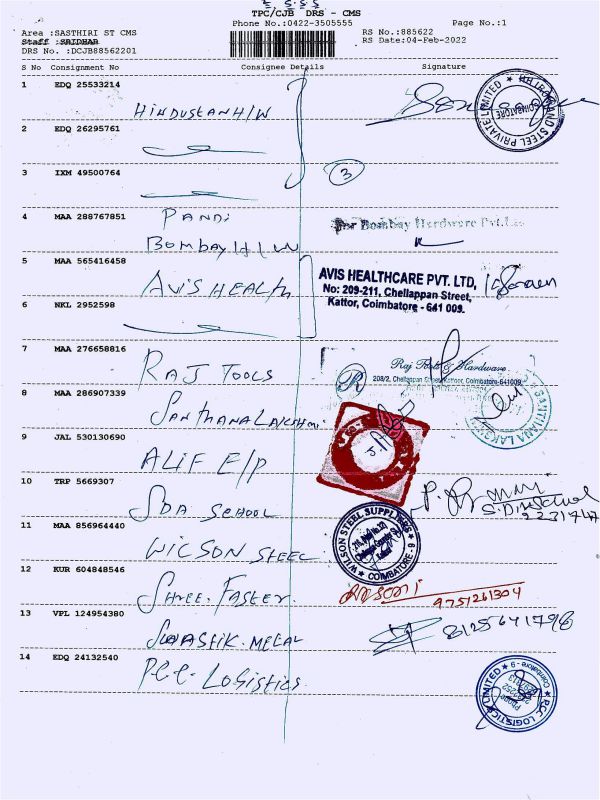 TPC/CJB DRS - CMS
Phone No.:0422-3505555
Page No.:1
Area :SASTHIRI ST CMS
Staff :SRIDHAR
DRS No. :DCJB88562201
RS No.:885622
RS Date:04-Feb-2022
S No Consignment No Consignee Details Signature
1 EDQ 25533214
HINDUSTAN H/W
2 EDQ 26295761
3 IXM 49500764
3
4 MAA 288767851
PANDi
BOMBAY H/W
For Bombay Hardware Pvt.Ltd
5 MAA 565416458
AVIS HEALTH
AVIS HEALTHCARE PVT. LTD,
No: 209-211, Chellappan Street,
Kattor, Coimbatore - 641 009.
6 NKL 2952598
7 MAA 276658816
RAJ TOOLS
Raj Tools & Hardware
208/2, Chellappan Street, Kattoor, Coimbatore-641009
8 MAA 286907339
SANTHANA LAKSHMI
9 JAL 530130690
ALIF E/P
10 TRP 5669307
SDA SCHOOL
11 MAA 856964440
WILSON STEEL
WILSON STEEL SUPPLIERS
COIMBATORE - 9
12 KUR 604848546
SHREE. FASTER.
9751261304
13 VPL 124954380
SWASTIK. METAL
8125641798
14 EDQ 24132540
P.C.C. LOGISTICS
P.C.C. LOGISTICS LIMITED
Coimbatore - 9